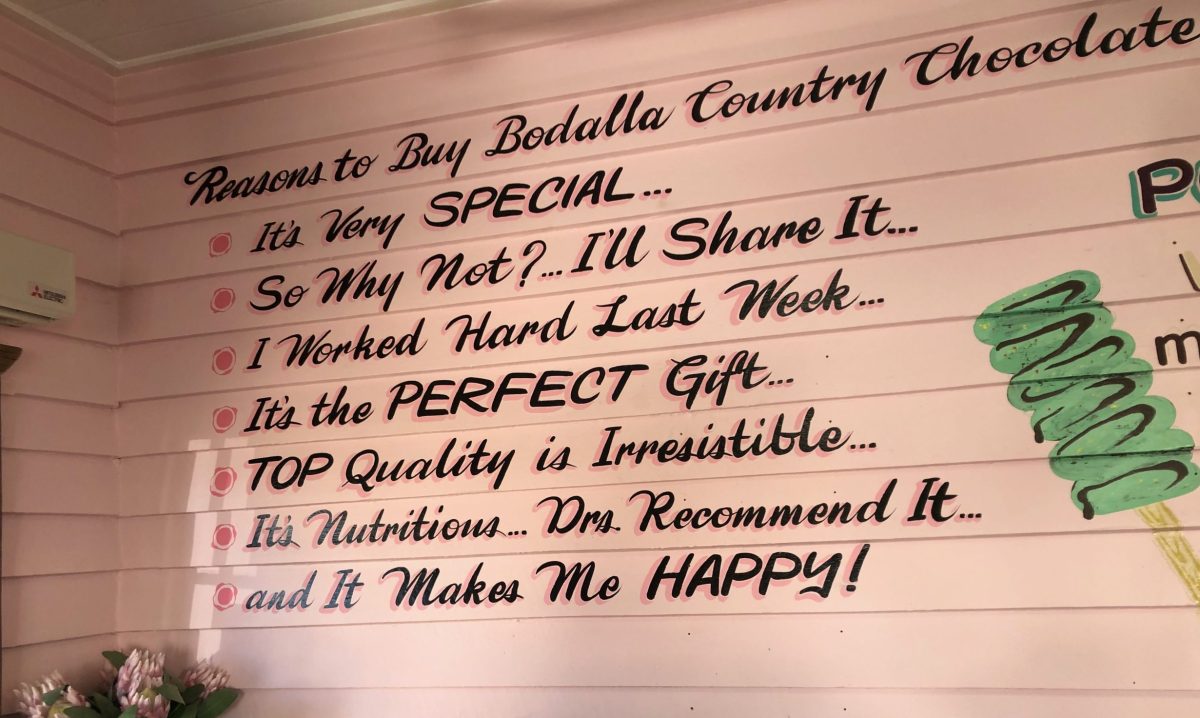 Reasons to Buy Bodalla Country Chocolate
It's Very SPECIAL...
So Why Not?... I'll Share It...
I Worked Hard Last Week...
It's the PERFECT Gift...
TOP Quality is Irresistible...
It's Nutritious... Drs Recommend It...
and It Makes Me HAPPY!
MITSUBISHI
ELECTRIC